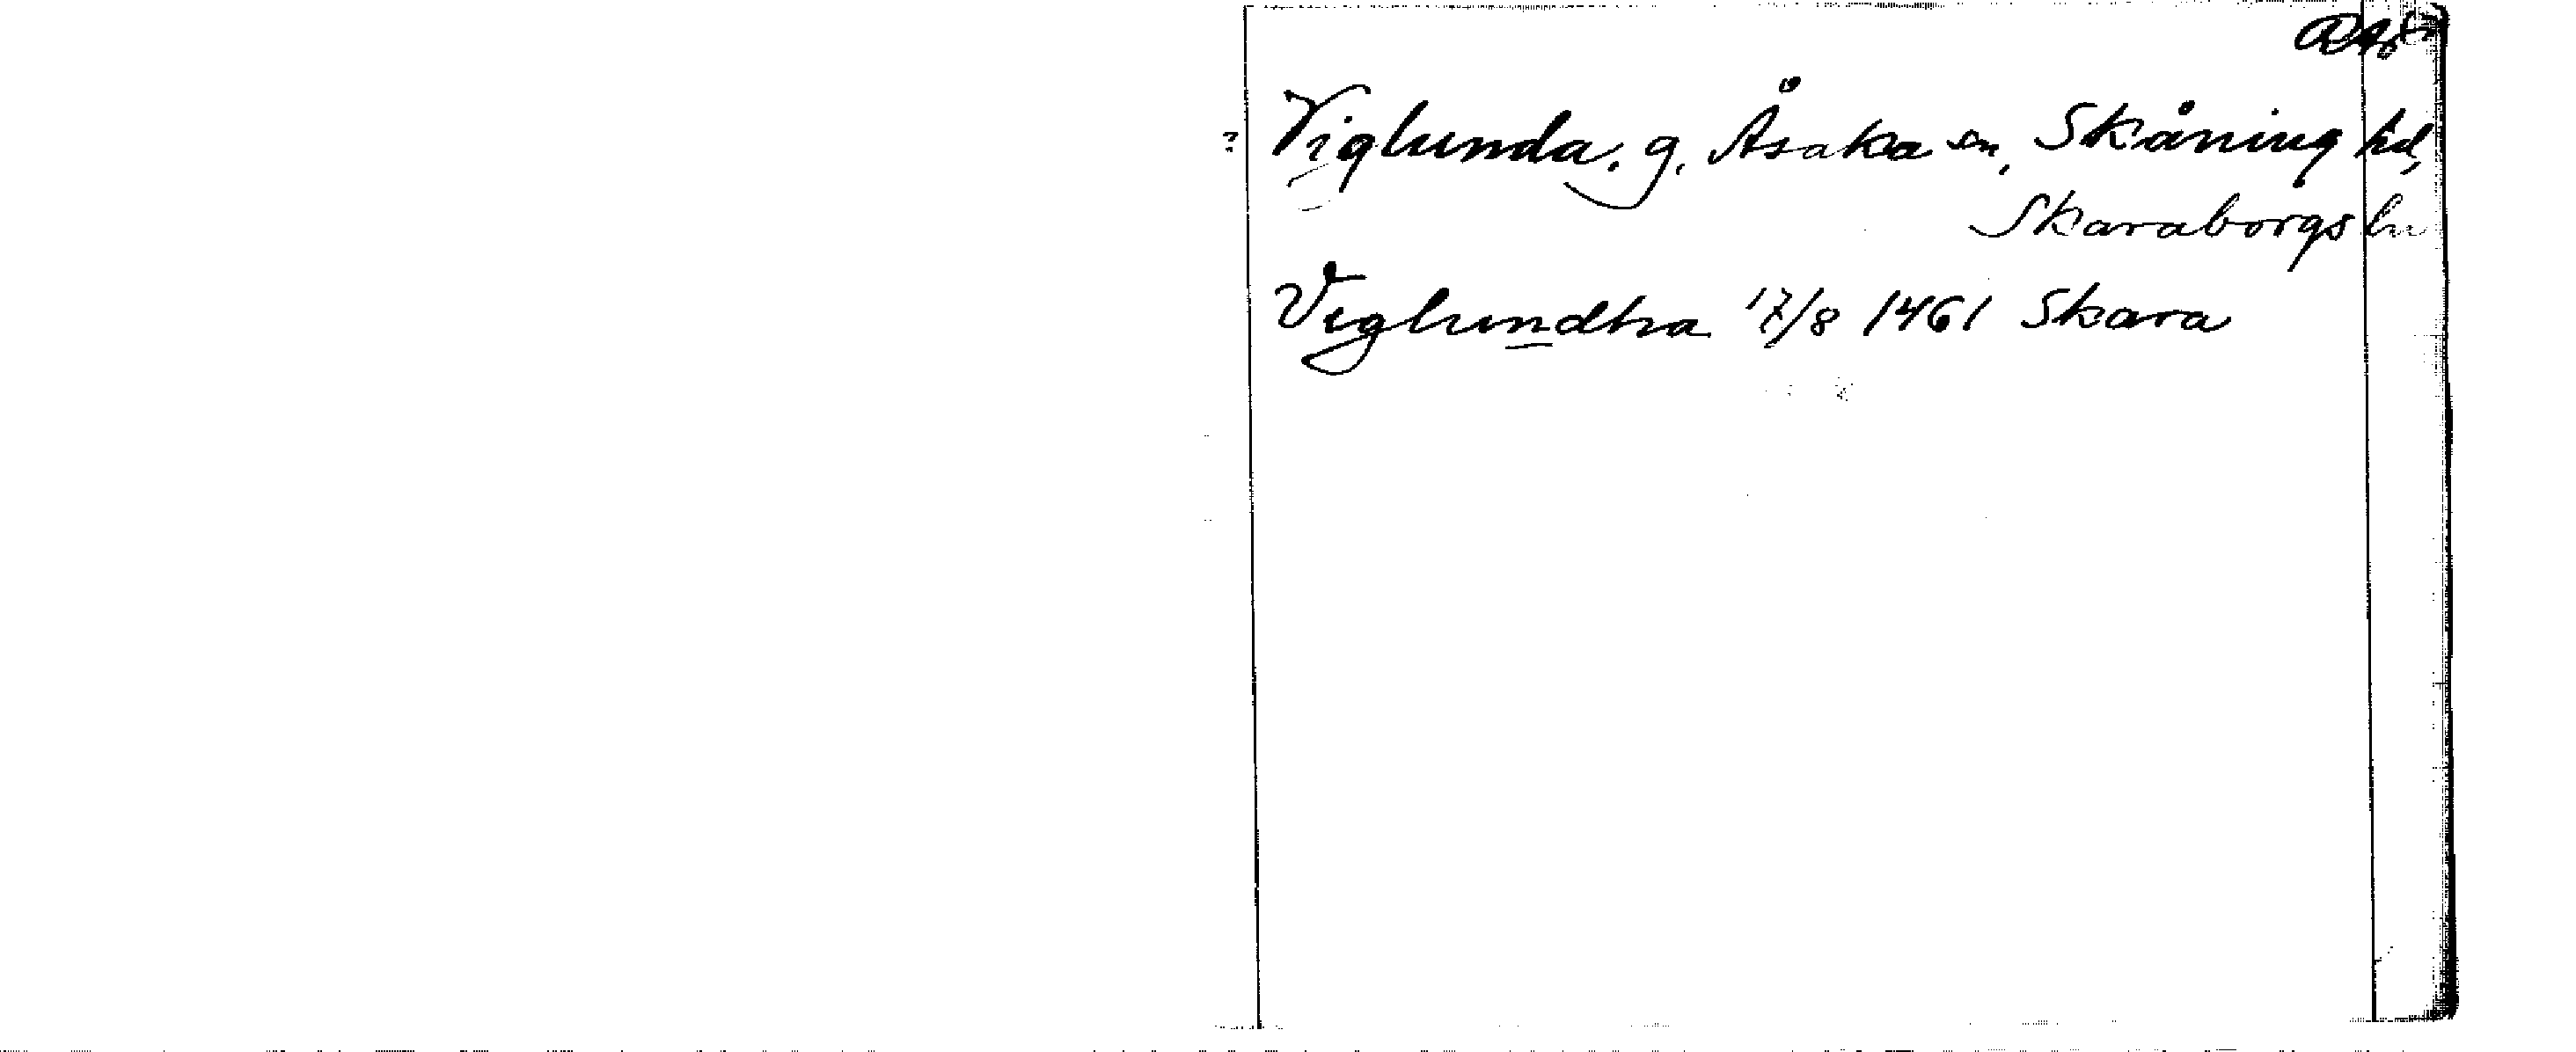 ? Viglunda. g. Åsaka sn, Skåning hd,
Skaraborgs ln
Viglundha 17/8 1461 Skara